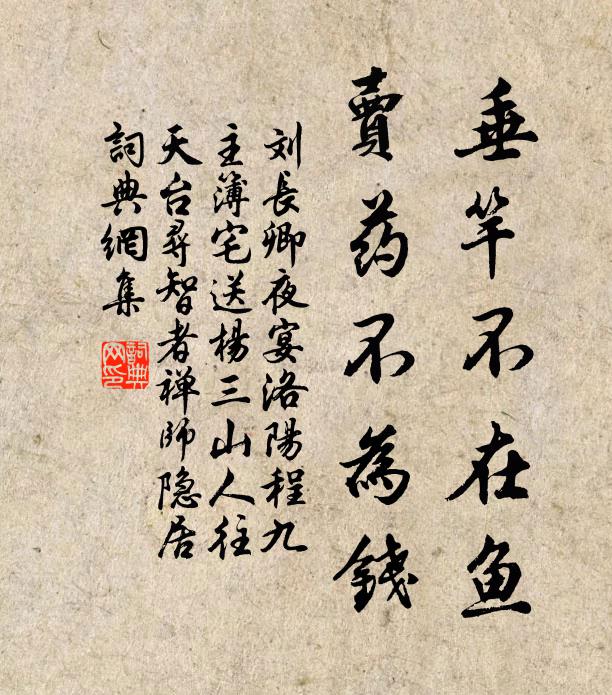 垂竿不在鱼
賣药不為錢
刘長卿夜宴洛陽程九
主簿宅送楊三山人往
天台尋智者禅师隐居
詞典網集
詞典
网印